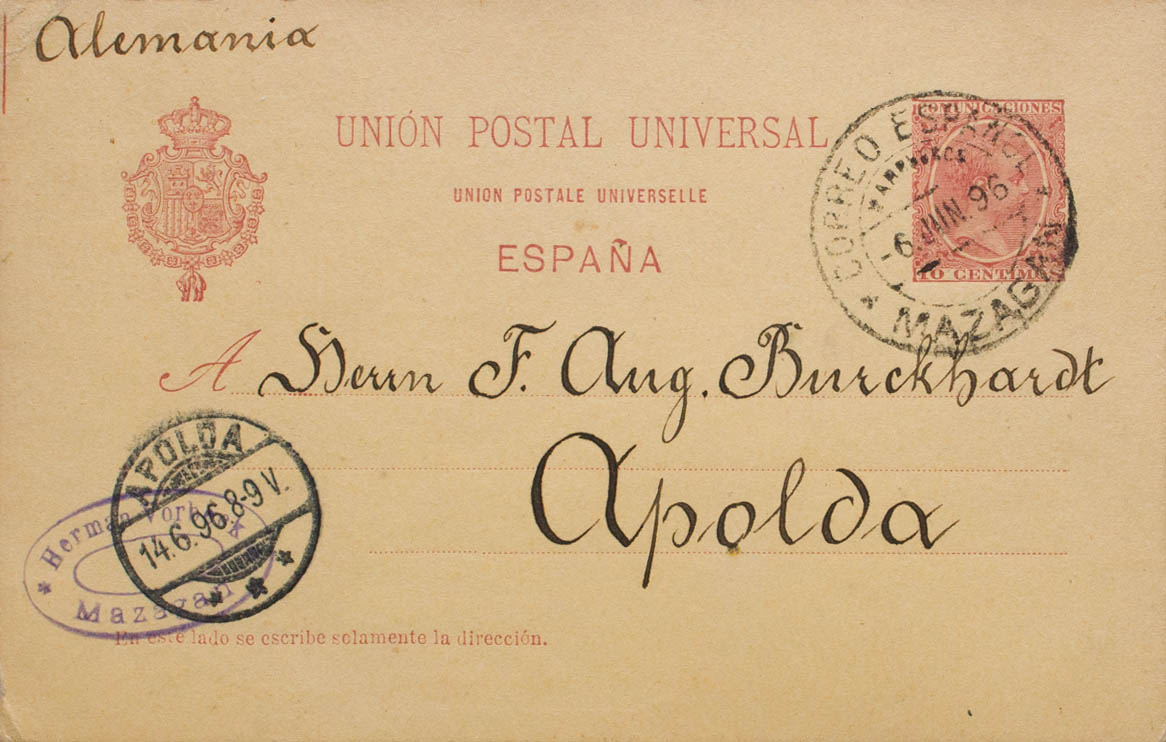 Alemania
UNIÓN POSTAL UNIVERSAL
UNION POSTALE UNIVERSELLE
ESPAÑA
COMUNICACIONES
10 CENTIMOS
CORREO ESPAÑOL
MARRUECOS
-6 JUN. 96
MAZAGAN
A Herrn F. Aug. Burckhardt
Apolda
APOLDA
14.6.96.8-9 V.
Herman
Mazagan
En este lado se escribe solamente la dirección.